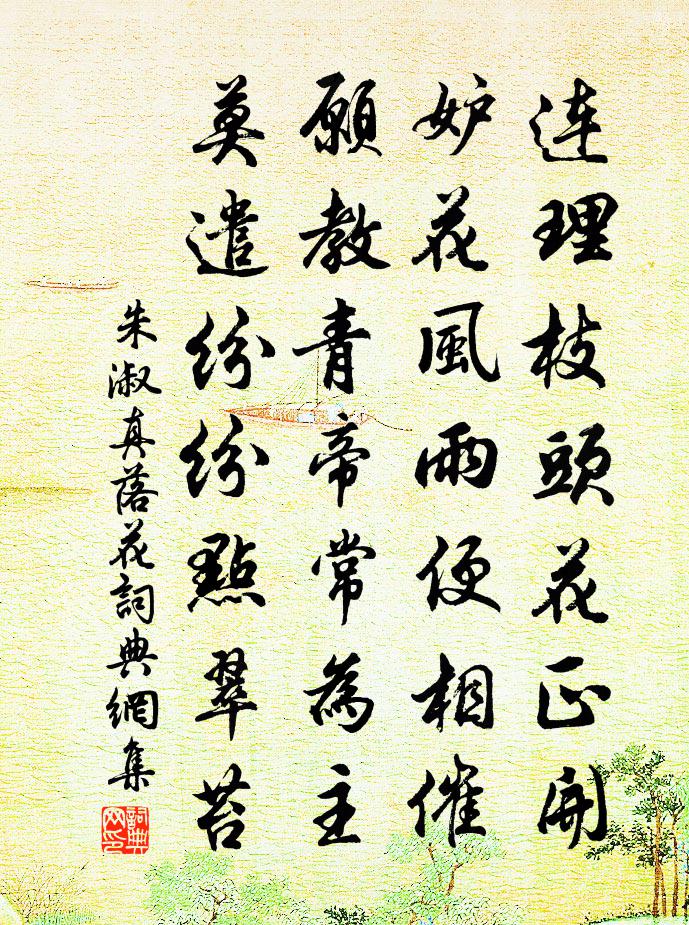 連理枝頭花正開
妒花風雨便相催
願教青帝常為主
莫遣紛紛點翠苔
朱淑真落花詞典網集
詞典网印